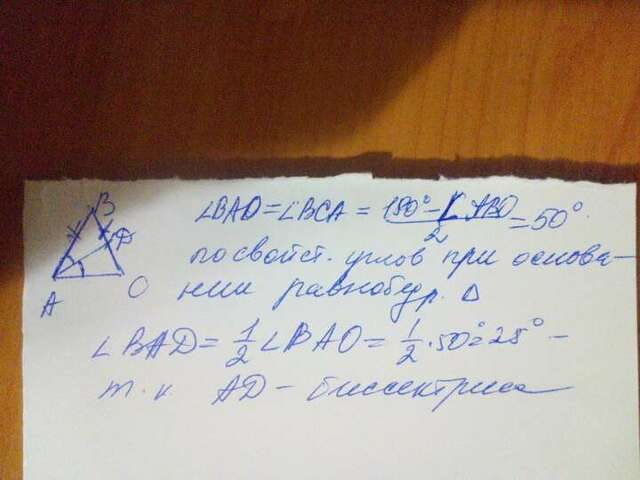 B
D
A
C
∠BAC = ∠BCA = (180° - ∠ABC)/2 = 50°
по свойст. углов при основа-
нии равнобедр. Δ
∠BAD = 1/2 ∠BAC = 1/2 · 50° = 25° -
т. к. AD - биссектриса